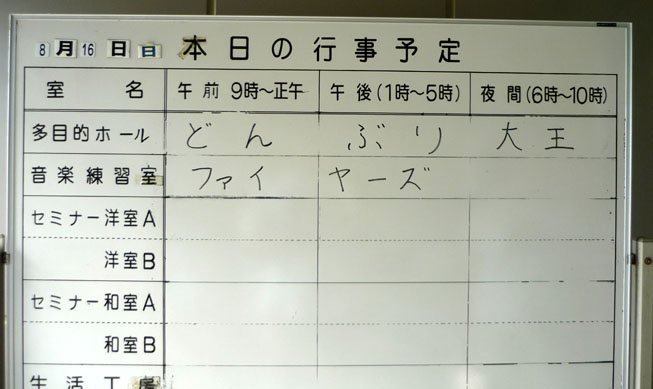 8月16日日 本日の行事予定
室名 午前 9時～正午 午後(1時～5時) 夜間(6時～10時)
多目的ホール どん ぶり 大王
音楽練習室 ファイ ヤーズ
セミナー洋室A
洋室B
セミナー和室A
和室B
生活工房